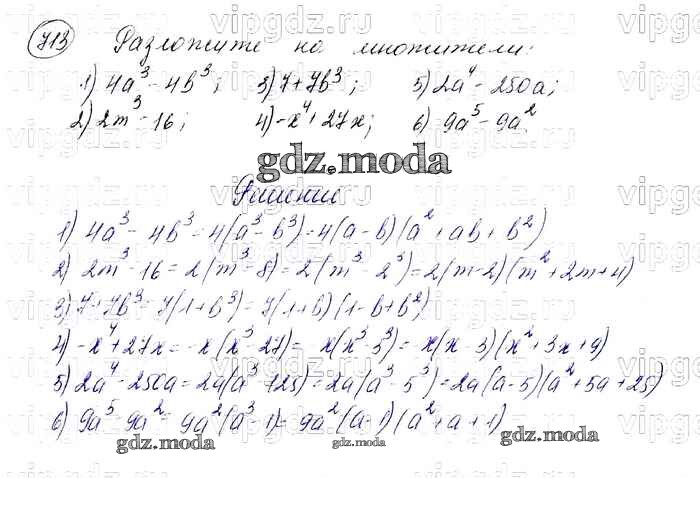 713 Разложите на множители:
1) 4a³ - 4b³; 3) 7 + 7b³; 5) 2a⁴ - 250a;
2) 2m³ - 16; 4) -x⁴ + 27x; 6) 9a⁵ - 9a²
gdz.moda
Решение
1) 4a³ - 4b³ = 4(a³ - b³) = 4(a - b)(a² + ab + b²)
2) 2m³ - 16 = 2(m³ - 8) = 2(m³ - 2³) = 2(m - 2)(m² + 2m + 4)
3) 7 + 7b³ = 7(1 + b³) = 7(1 + b)(1 - b + b²)
4) -x⁴ + 27x = -x(x³ - 27) = -x(x³ - 3³) = -x(x - 3)(x² + 3x + 9)
5) 2a⁴ - 250a = 2a(a³ - 125) = 2a(a³ - 5³) = 2a(a - 5)(a² + 5a + 25)
6) 9a⁵ - 9a² = 9a²(a³ - 1) = 9a²(a - 1)(a² + a + 1)
gdz.moda gdz.moda gdz.moda
vipgdz.ru